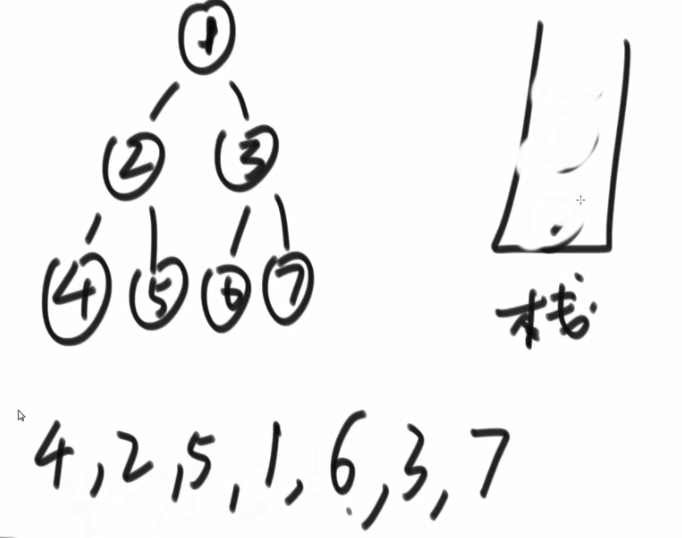 1
2 3
4 5 6 7
栈
4,2,5,1,6,3,7